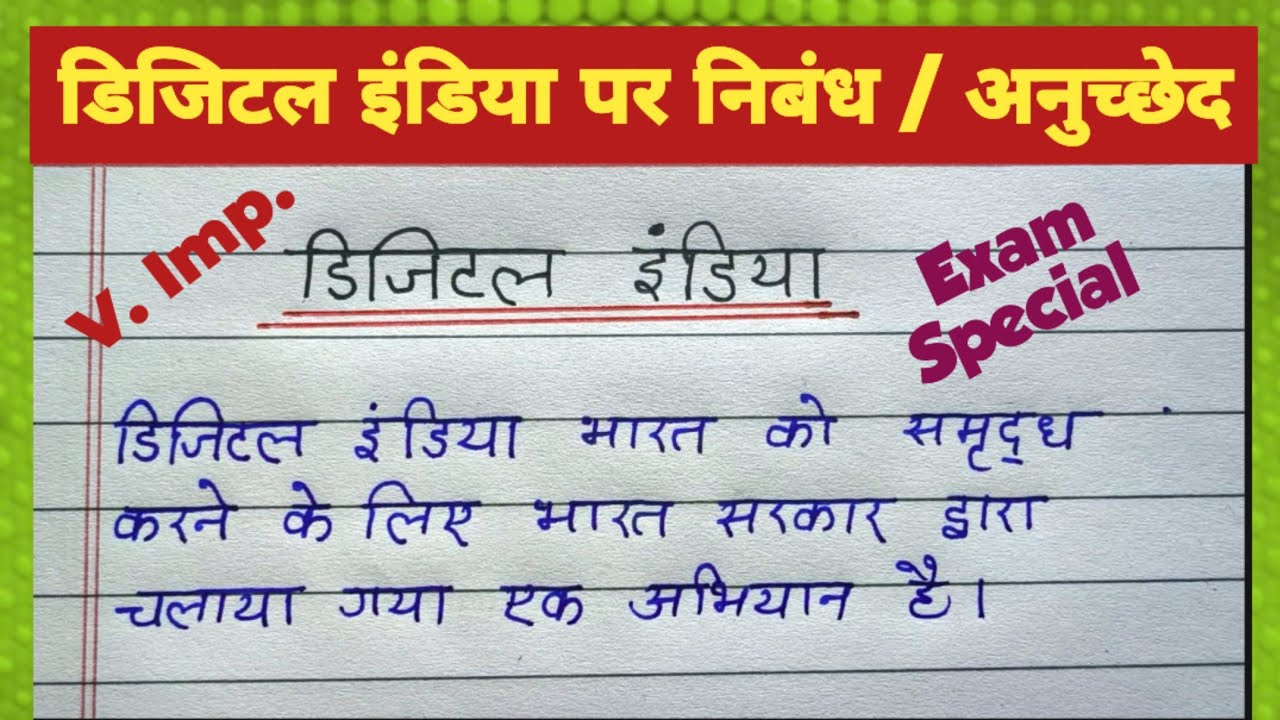 डिजिटल इंडिया पर निबंध / अनुच्छेद
V. Imp.
Exam
Special
डिजिटल इंडिया
डिजिटल इंडिया भारत को समृद्ध
करने के लिए भारत सरकार द्वारा
चलाया गया एक अभियान है।